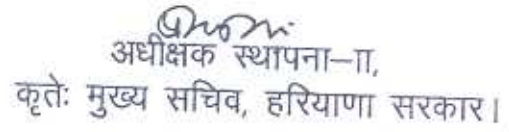 अधीक्षक स्थापना-II,
कृतेः मुख्य सचिव, हरियाणा सरकार।